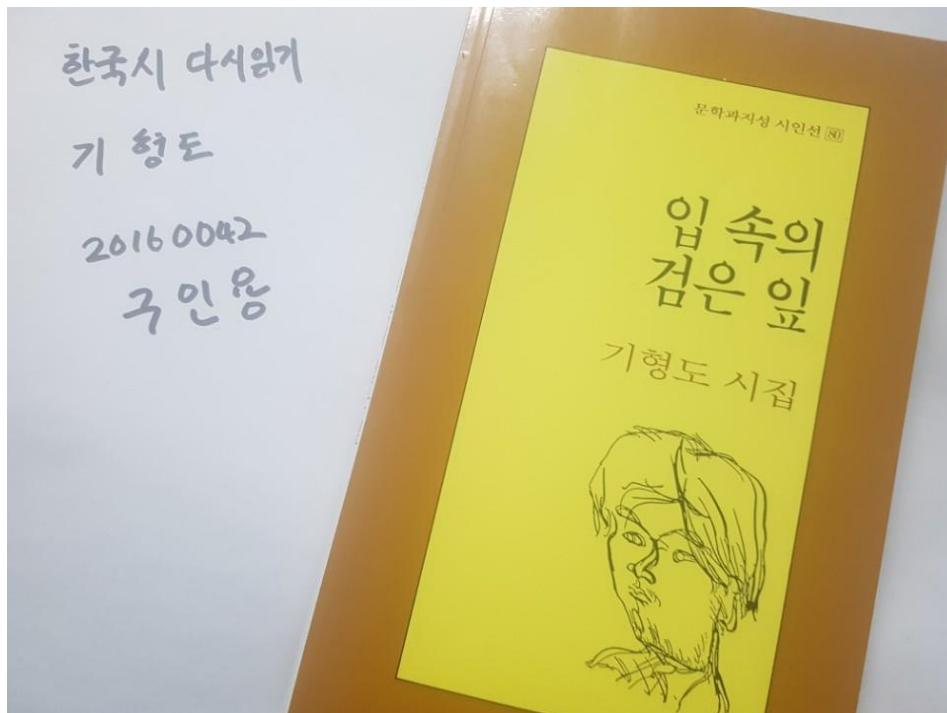 한국시 다시읽기
기형도
20160042
구인용
문학과지성 시인선 80
입 속의
검은 잎
기형도 시집